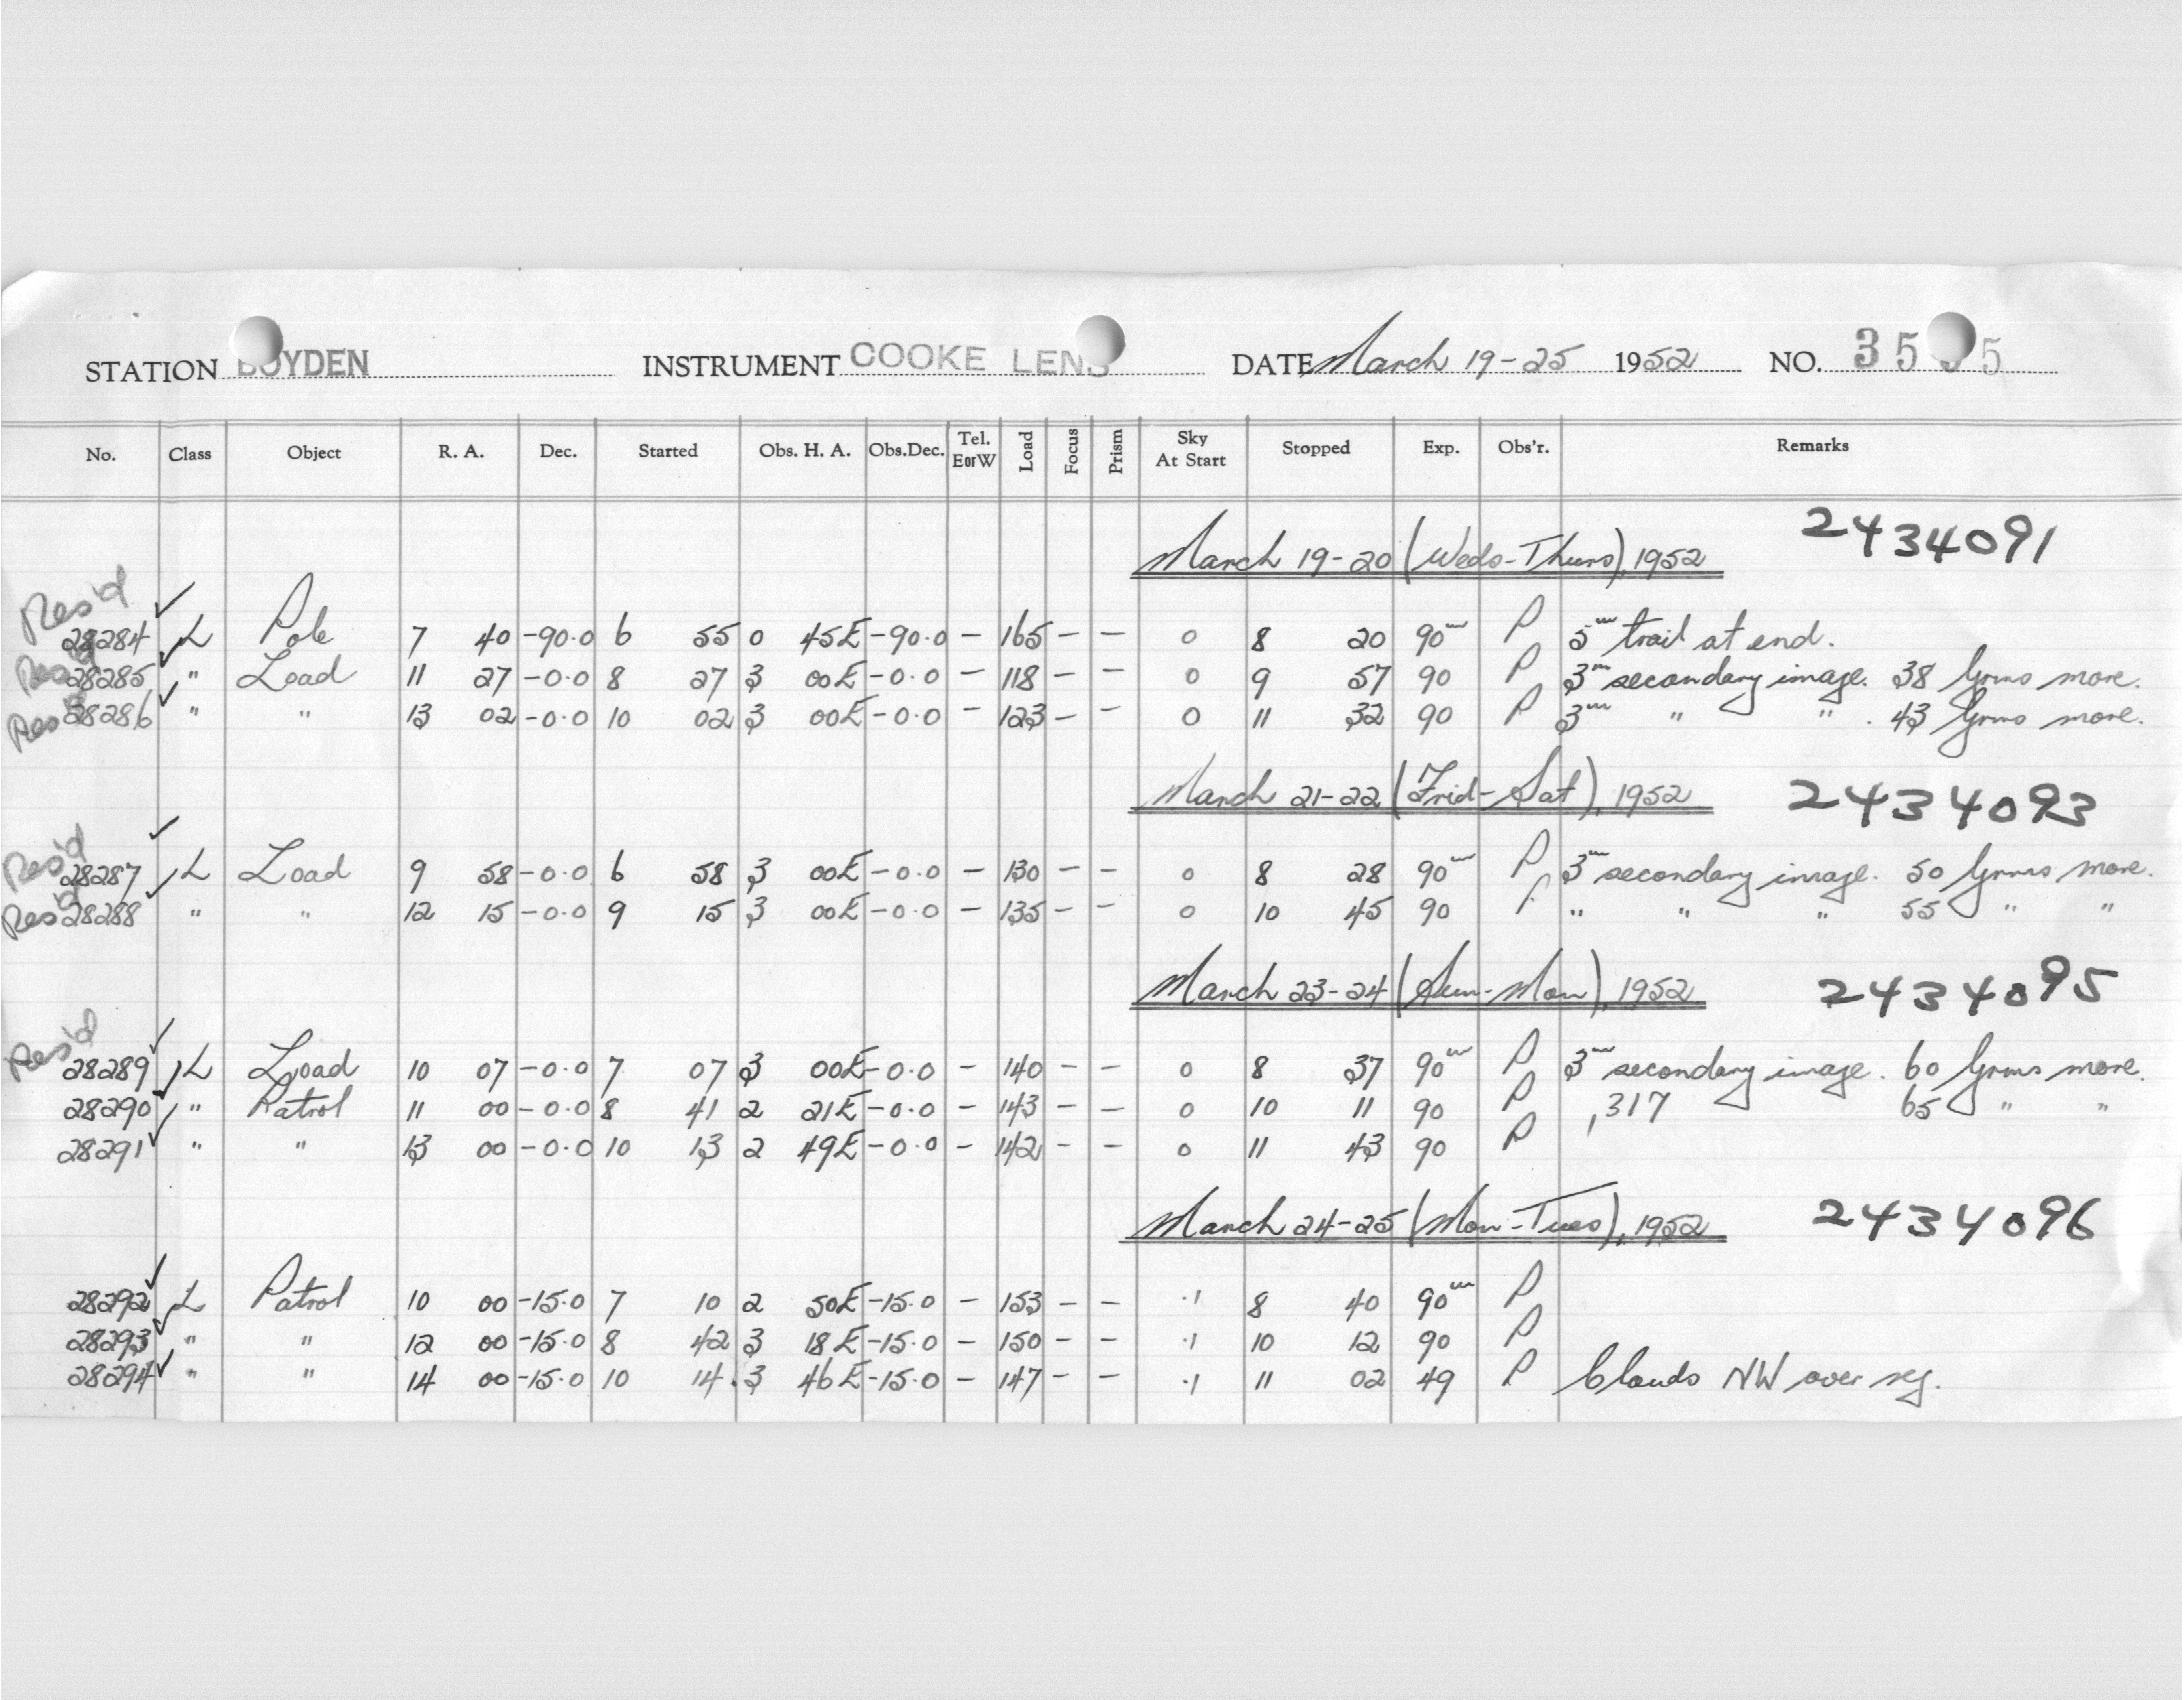 STATION BOYDEN INSTRUMENT COOKE LENS DATE March 19-25 1952 NO. 35 5
No. Class Object R. A. Dec. Started Obs. H. A. Obs.Dec. Tel. EorW Load Focus Prism Sky At Start Stopped Exp. Obs'r. Remarks
March 19-20 (Weds-Thurs), 1952 2434091
Res'd 28284 ✓ L Pole 7 40 -90.0 6 55 0 45E -90.0 - 165 - - 0 8 20 90m P 5m trail at end.
Res'd 28285 ✓ " Load 11 27 -0.0 8 27 3 00E -0.0 - 118 - - 0 9 57 90 P 3m secondary image. 38 Grms more.
Res'd 28286 ✓ " " 13 02 -0.0 10 02 3 00E -0.0 - 123 - - 0 11 32 90 P 3m " " . 43 Grms more.
March 21-22 (Frid-Sat), 1952 2434093
Res'd 28287 ✓ L Load 9 58 -0.0 6 58 3 00E -0.0 - 130 - - 0 8 28 90m P 3m secondary image. 50 Grms more.
Res'd 28288 ✓ " " 12 15 -0.0 9 15 3 00E -0.0 - 135 - - 0 10 45 90 P " " " 55 " "
March 23-24 (Sun-Mon), 1952 2434095
Res'd 28289 ✓ L Load 10 07 -0.0 7 07 3 00E -0.0 - 140 - - 0 8 37 90m P 3m secondary image. 60 Grms more.
28290 ✓ " Patrol 11 00 -0.0 8 41 2 21E -0.0 - 143 - - 0 10 11 90 P ,317 65 " "
28291 ✓ " " 13 00 -0.0 10 13 2 49E -0.0 - 142 - - 0 11 43 90 P
March 24-25 (Mon-Tues), 1952 2434096
28292 ✓ L Patrol 10 00 -15.0 7 10 2 50E -15.0 - 153 - - .1 8 40 90m P
28293 ✓ " " 12 00 -15.0 8 42 3 18E -15.0 - 150 - - .1 10 12 90 P
28294 ✓ " " 14 00 -15.0 10 14 3 46E -15.0 - 147 - - .1 11 02 49 P Clouds NW over reg.